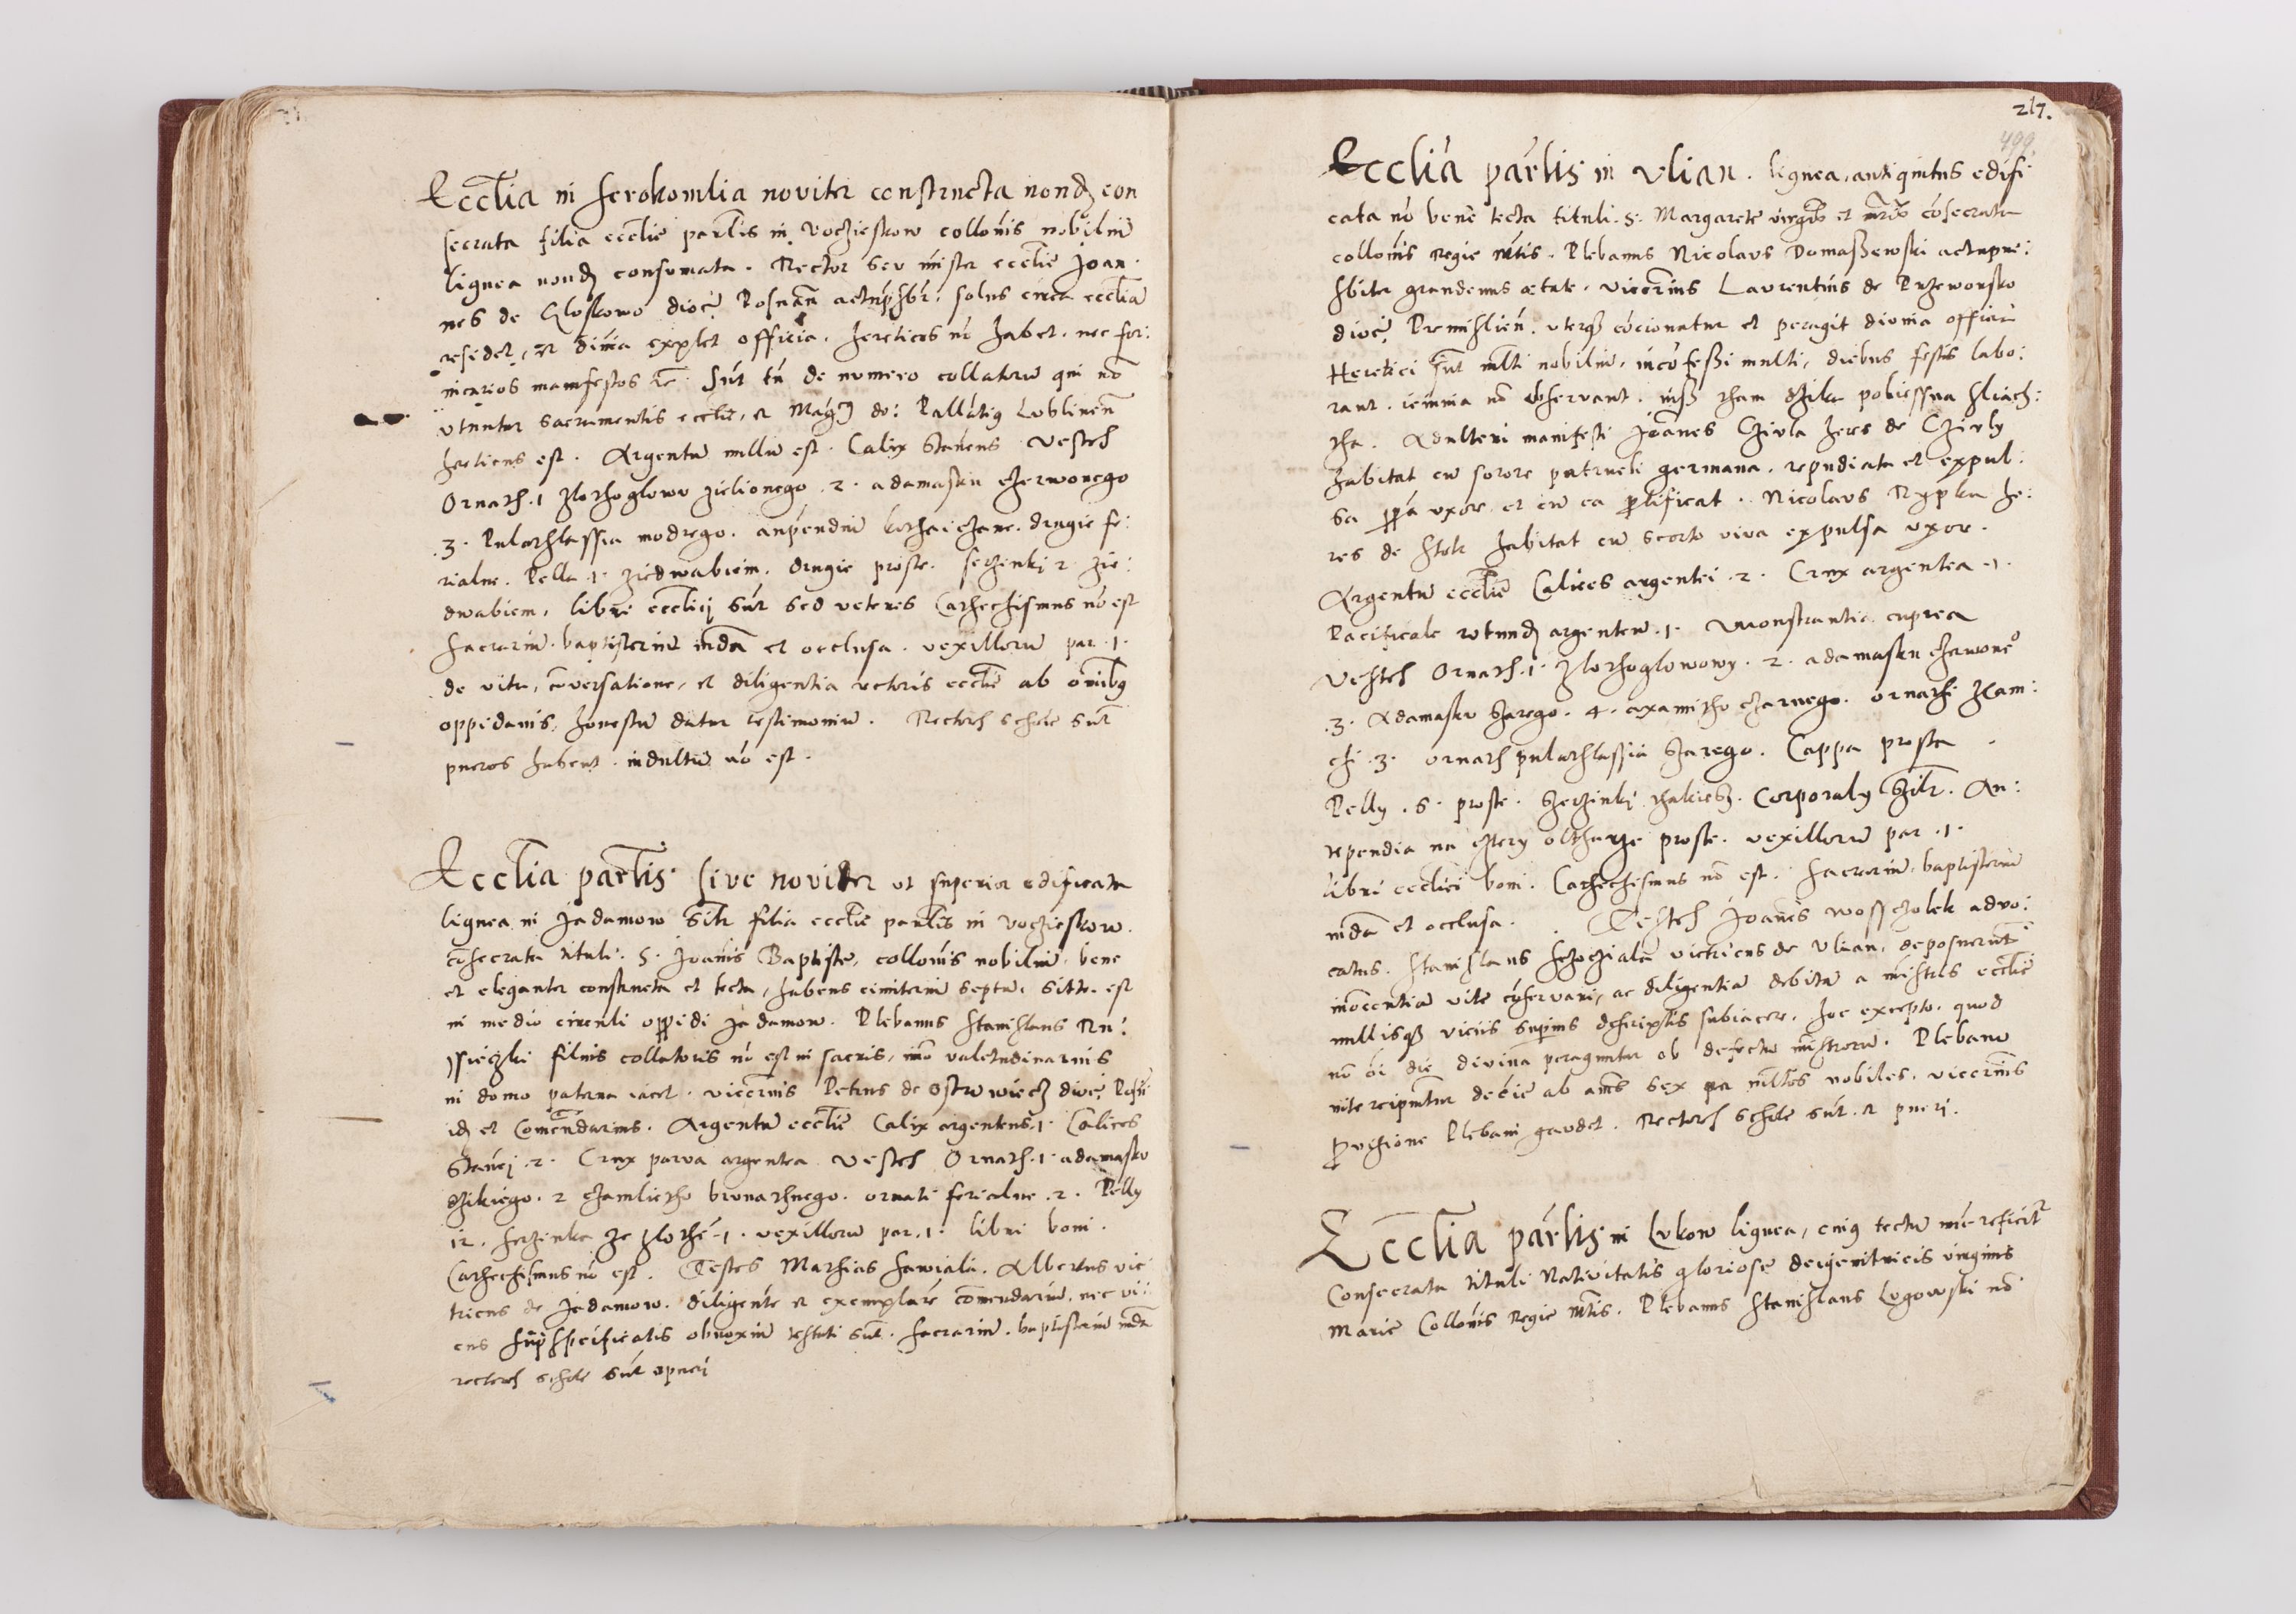 Eccl̄ia in Serokomlia noviter constructa nondʒ con
secrata filia eccl̄ie par̄lis in Voczieskow collōnis nobiliū
lignea nondʒ consumata. Rector seu mīster eccl̄ie Joan:
nes de Kloskowo dioc̄ Posnan̄ actu p̄sbr̄: solus circa eccl̄ia
residet, et divīa explet officia. hereticos nō habet. nec for:
nicarios manifestos &c. Sūt tn̄ de numero collatorū qui nō
utuntur sacramentis eccl̄ie, et Magcʒ do: Pallatiꝯ Lublinen̄
hereticus est. Argentū nullū est. Calix staneus Vestes
Ornath .1. zlothoglowu zielionego .2. adamasku czerwonego
.3. Pulathlassia modrego. an̄pendiū kithaiczane. drugie fe:
rialne. Pella .1. ziedwabiem. drugie proste. seczinki 2 zie:
dwabiem. libri eccl̄ici sūt sed veteres Cathechismus nō est
Sacrariū. baptisteriū mda et occlusa. vexillorū par .1.
de vita, cōversatione, et diligentia rectoris eccl̄ie ab om̄ibꝯ
oppidanis honestū datur testimoniū. Rectores schole sūt
pueros habent. indultū nō est.
Eccl̄ia par̄lis sive noviter ut superior edificata
lignea in Jadamow sīlr filia eccl̄ie par̄lis in Voczieskow.
cōsecrata tituli. S. Joānis Baptiste, collōnis nobiliū. bene
et eleganter constructa et tecta, habens cimiteriū septū. Sitta est
in medio circuli oppidi Jadamow. Plebanus Stanislaus Ru:
ssieczki filius collatoris nō est in sacris, imo valetudinarius
in domo paterna iacet. vicerius Petrus de Ostrowiecz dioc̄ Posn̄
idʒ et Comendarius. Argentū eccl̄ie Calix argenteus .1. Calices
Stanei .2. Crux parva argentea Vestes Ornath .1. adamasku
dzikiego. 2 czamlietho brunathnego. ornati ferialne .2. Pelly
12. seczinka ze zlothē .1. vexillorū par .1. libri boni.
Cathechismus nō est. Testes Mathias Sawiali. Albertus vie
tricus de Jadamow. diligente et exemplare comendariū. nec vi:
cus supspecificatis obnoxiū testati sūt. Sacrariū. baptisteriū mda
rectores schole sūt et pueri
217.
499.
Ecclīa par̄lis in Vlian. lignea, antiquitus edifi
cata nō bene tecta tituli. S. Margarete virgīs et mr̄is cōsecrata
collōnis Regie mtis. Plebanus Nicolaus Domaszewski actu pre:
sbiter grandevus aetate. vicerius Laurentius de Przeworsko
dioc̄ Premislien̄. uterqʒ cōcionatur et peragit divina officia
Heretici sūt mlti nobiliū, incōfessi multi, diebus festis labo:
rant. ieiunia nō observant. Adulteri manifesti Joānes Czirla heres de Czirly
habitat cū sorore patrueli germana. repudiata et expul:
sa pp̄a uxore et cū ea prolificat. Nicolaus Rypka he:
res de Stok habitat cū scorto viva expulsa uxore.
Argentū eccl̄ie Calices argentei .2. Crux argentea .1.
Pacificale rotundʒ argenteū .1. Monstrantia cuprea
Vestes Ornath .1. zlothoglowowy. 2. adamasku czerwone°
.3. Adamasku szarego. 4. axamitho czarnego. ornathi tham:
ci .3. ornath pulathlassia szarego. Cappa prosta
Pelly .6. proste. Seczinki thakiesz. Corporaly sīlr. An:
tependia na cztery oltharze proste. vexillorū par .1.
libri eccl̄ici boni. Cathechismus nō est. Sacrariū, baptisteriū
mda et occlusa. Testes Joānes Wosscolek advo:
catus. Stanislaus victricus de Vlian, deposuerūt
inocentia vite cōservari, ac diligentia debita a mīstris eccl̄ie
nullisqʒ viciis superius descriptis subiacere. hoc excepto. quod
nō oī die divina peraguntur ob defectū mīstrorū. Plebano
nite recipiuntur decie ab annis sex pa mltos nobiles. vicerius
provisione Plebani gaudet. Rectores schole sūt et pueri.
Eccl̄ia par̄lis in Lukow lignea, cuiꝯ tectū nūc reficit̄
Consecrata tituli Nativitatis gloriose deigenitricis virginis
Marie Collōnis Regie mtis. Plebanus Stanislaus Lugowski nō